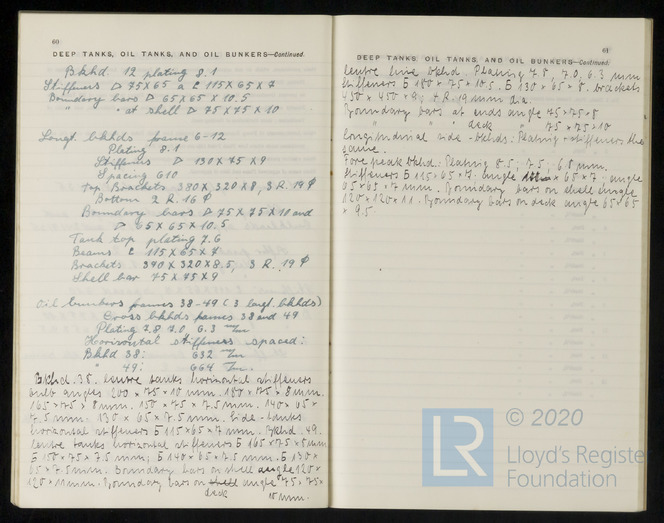 60
DEEP TANKS, OIL TANKS, AND OIL BUNKERS—Continued.
Bkhd. 12 plating 8.1
Stiffeners 75X65 a 115X65X7
Boundary bars 65X65X10.5
" " at shell 75X75X10
Longt. bkhds frame 6-12
Plating 8.1
Stiffeners 130X75X9
Spacing 610
Top Brackets 380X320X8, 3 R. 19 φ
Bottom 2 R. 16 φ
Boundary bars 75X75X10 and
65X65X10.5
Tank top plating 7.6
Beams 115X65X7
Brackets 340X320X8.5, 3 R. 19 φ
Shell bar 75X75X9
Oil bunkers frames 38-49 (3 longt. bkhds)
Cross bkhds frames 38 and 49
Plating 7.8 7.0 6.3 m/m
Horizontal stiffeners spaced:
Bkhd 38: 632 m/m
" 49: 664 m/m.
Bkhd. 38. Centre tanks horizontal stiffeners
bulb angles 200 x 75 x 10 mm. 180 x 75 x 8 mm.
165 x 75 x 8 mm. 150 x 75 x 7.5 mm. 140 x 65 x
7.5 mm. 130 x 65 x 7.5 mm. Side-tanks
horizontal stiffeners 115 x 65 x 7 mm. Bkhd. 49.
Centre tanks horizontal stiffeners 165 x 75 x 8 mm
150 x 75 x 7.5 mm; 140 x 65 x 7.5 mm. 130 x
65 x 7.5 mm. Boundary bars on shell angle 120 x
120 x 11 mm. Boundary bars on shell angle 75 x 75 x
deck 10 mm.
61
DEEP TANKS, OIL TANKS, AND OIL BUNKERS—Continued.
Centre line bkhd. Plating 7.8, 7.0, 6.3 mm
stiffeners 180 x 75 x 10.5. 130 x 65 x 8. brackets
450 x 8, 4 R. 19 mm dia.
Boundary bars at ends angle 75 x 75 x 8
" " " deck " 75 x 75 x 10
Longitudinal side-bkhds: Plating + stiffeners the
same.
Fore peak bkhd: Plating 8.5, 7.5, 6.8 mm.
Stiffeners 115 x 65 x 7. angle x 65 x 7, angle
65 x 65 x 7 mm. Boundary bars on shell angle
120 x 120 x 11. Boundary bars on deck angle 65 x 65
x 9.5.
LR
© 2020
Lloyd's Registe
Foundation